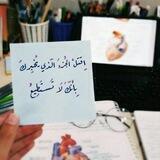 اِقتلْ الجُزءَ الذي يُخبِركَ
بِأنّكَ لَا تَستَطيعُ